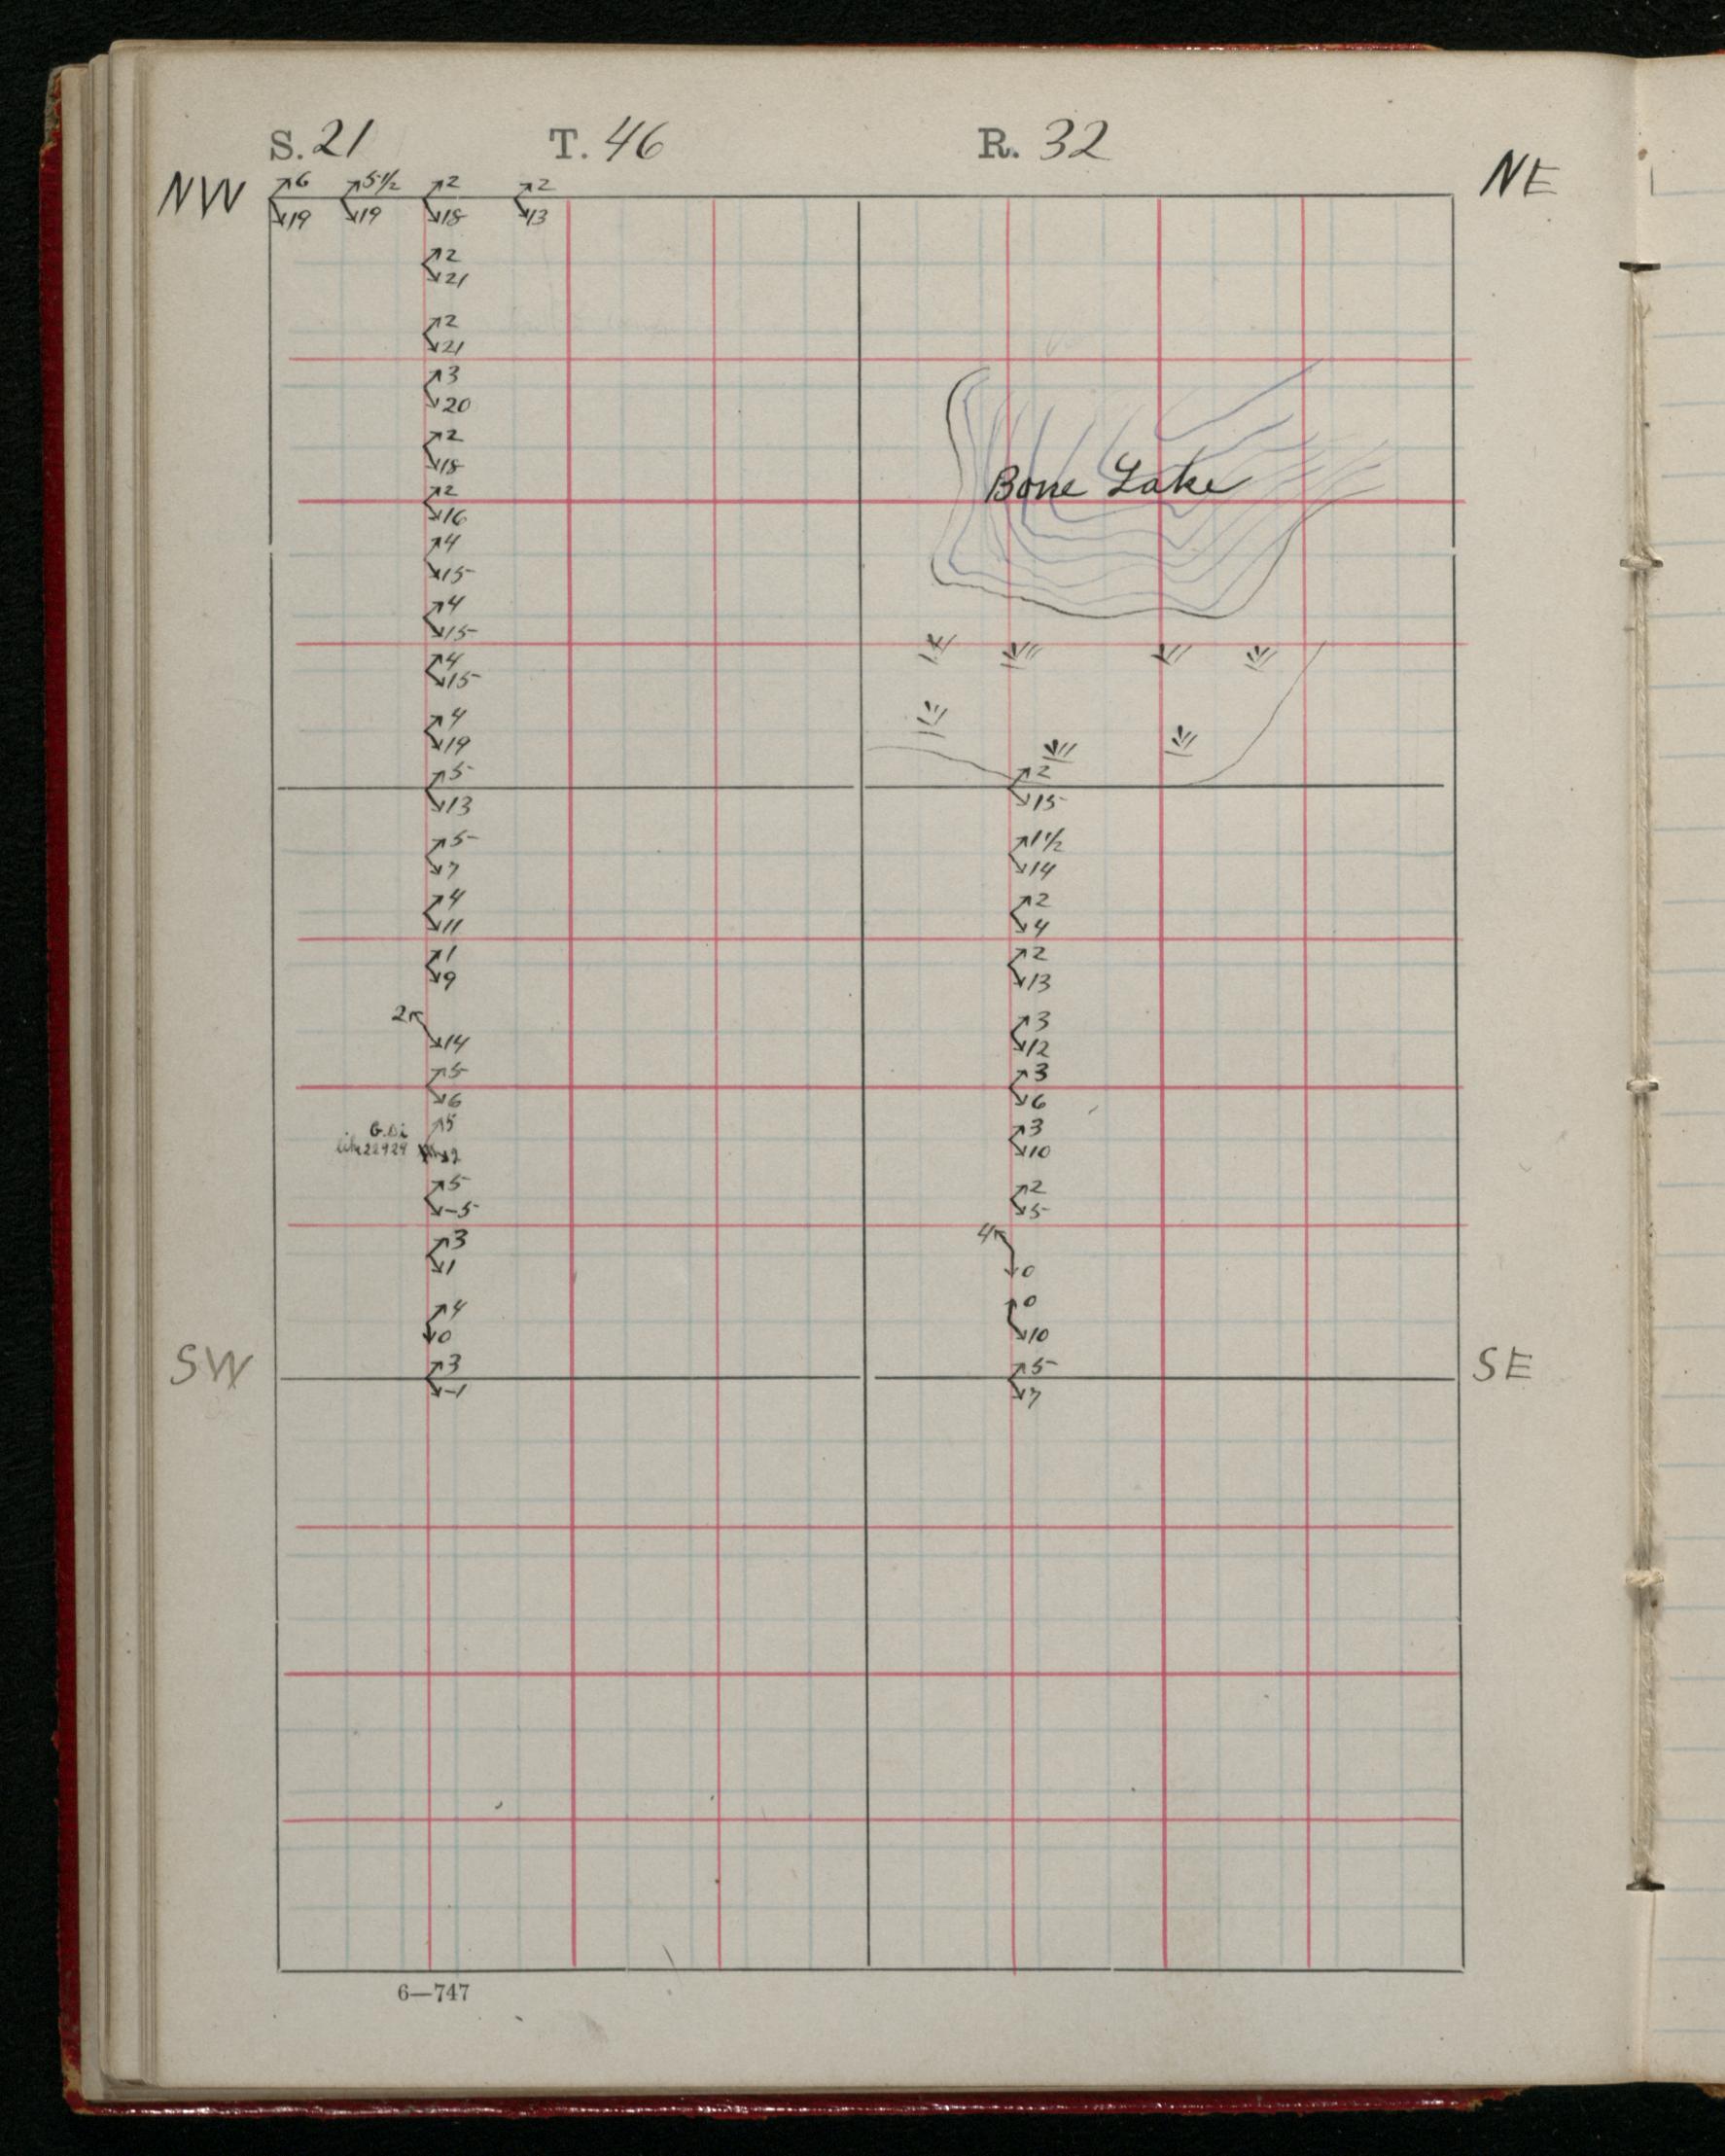 S. 21 T. 46 R. 32
NW NE
6 5 1/2 2 2
19 19 18 13
2
21
2
21
3
20
2
18
Bone Lake
2
16
4
15
4
15
4
15
4
19
5 2
13 15
5 1 1/2
7 14
4 2
11 4
1 2
9 13
2 3
14 12
5 3
6 6
G.Di 5 3
like 22929 10
5 2
-5 5
3 4
1 0
4 0
0 10
SW 3 5 SE
-1 7
6—747